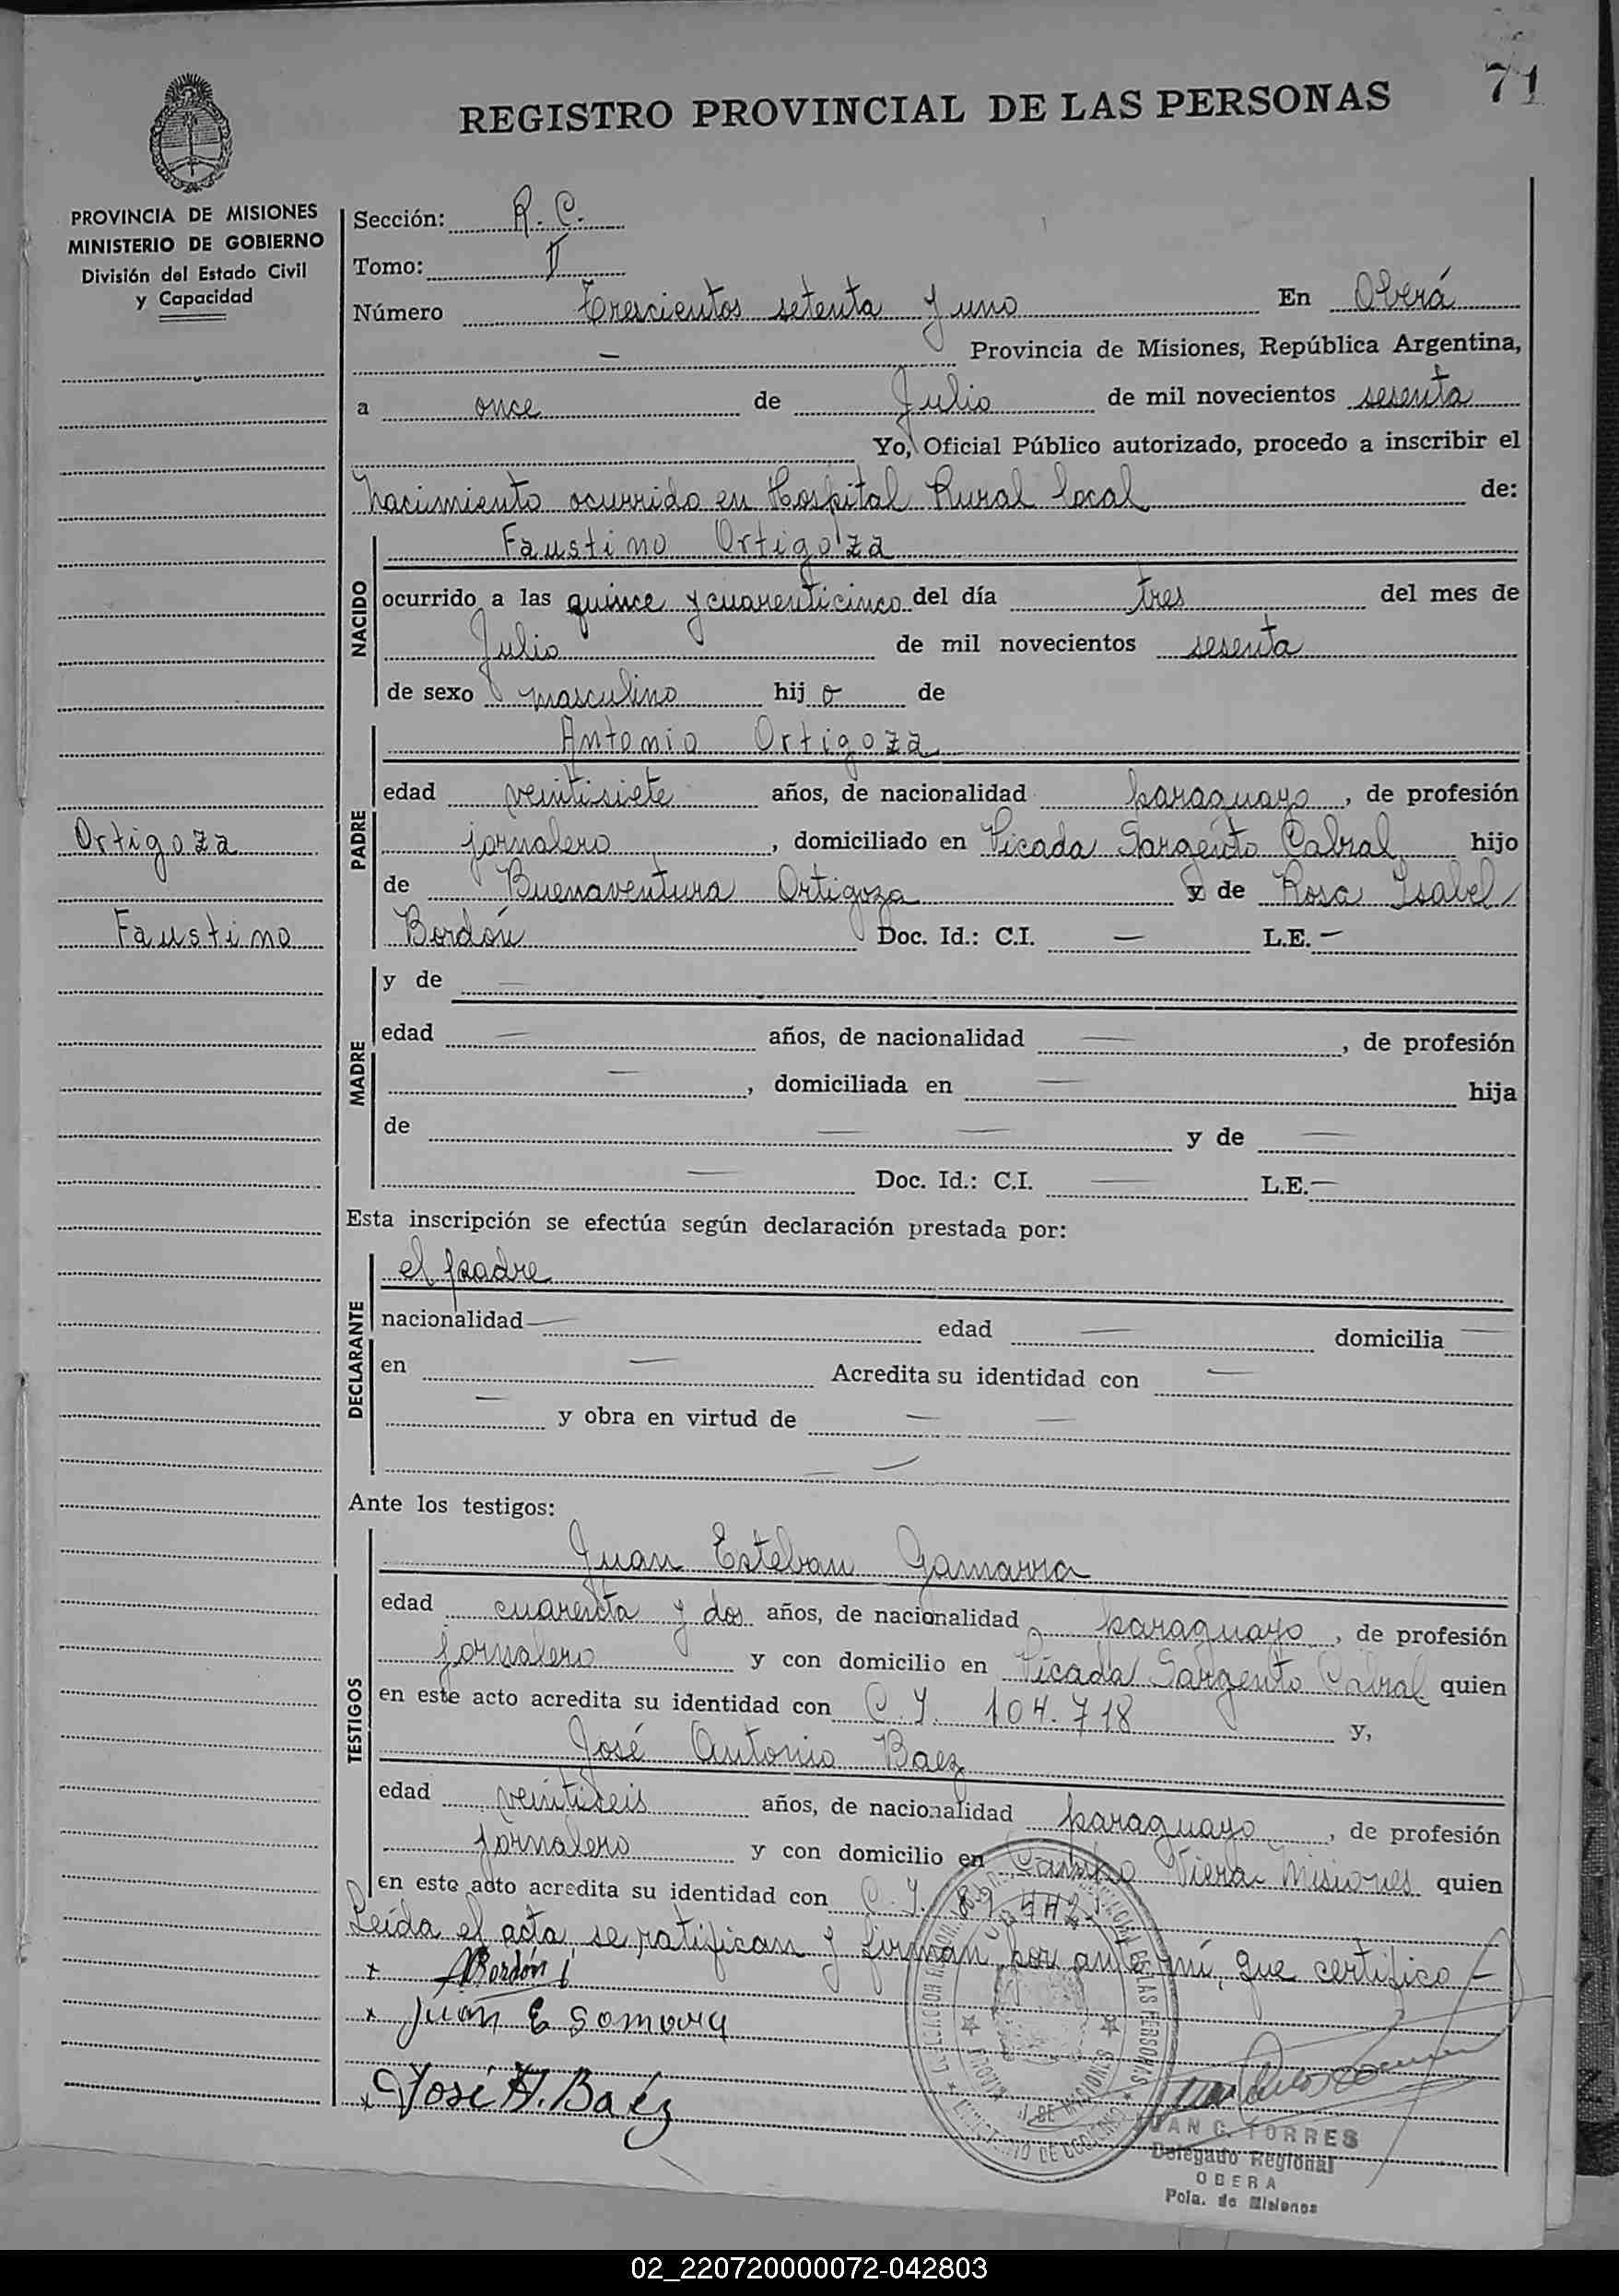 71
REGISTRO PROVINCIAL DE LAS PERSONAS
PROVINCIA DE MISIONES
MINISTERIO DE GOBIERNO
División del Estado Civil
y Capacidad
Sección: R. C.
Tomo: II
Número Trescientos setenta y uno En Oberá
— Provincia de Misiones, República Argentina,
a once de Julio de mil novecientos sesenta
Yo, Oficial Público autorizado, procedo a inscribir el
nacimiento ocurrido en Hospital Rural local de:
NACIDO
Faustino Ortigoza
ocurrido a las quince y cuarenticinco del día tres del mes de
Julio de mil novecientos sesenta
de sexo masculino hij o de
PADRE
Antonio Ortigoza
edad veintisiete años, de nacionalidad paraguayo, de profesión
jornalero, domiciliado en Picada Sargento Cabral hijo
de Buenaventura Ortigoza y de Rosa Isabel
Bordón Doc. Id.: C.I. — L.E. —
Ortigoza
Faustino
MADRE
y de —
edad — años, de nacionalidad —, de profesión
—, domiciliada en — hija
de — — y de —
— Doc. Id.: C.I. — L.E. —
Esta inscripción se efectúa según declaración prestada por:
DECLARANTE
el padre
nacionalidad — edad — domicilia —
en — Acredita su identidad con —
— y obra en virtud de — —
— —
Ante los testigos:
TESTIGOS
Juan Esteban Gamarra
edad cuarenta y dos años, de nacionalidad paraguayo, de profesión
jornalero y con domicilio en Picada Sargento Cabral quien
en este acto acredita su identidad con C. I. 104.718 y,
José Antonio Baez
edad veintiseis años, de nacionalidad paraguayo, de profesión
jornalero y con domicilio en Campo Viera Misiones quien
en este acto acredita su identidad con C. I.
Leída el acta se ratifican y firman por ante mí, que certifico —
x Bordón
x Juan E
x José A. Baéz
JUAN C. TORRES
Delegado Regional
OBERA
Pcia. de Misiones
02_220720000072-042803